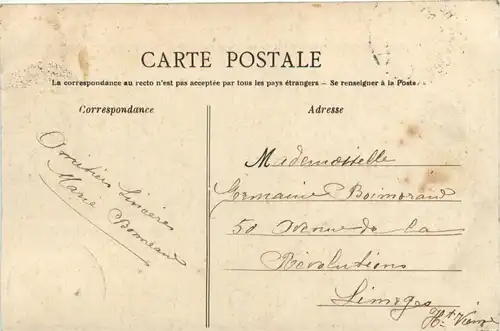 CARTE POSTALE
La correspondance au recto n'est pas acceptée par tous les pays étrangers — Se renseigner à la Poste.
Correspondance
Amitiés Sincères
Marie Bonneaud
Adresse
Mademoiselle
Germaine Boimoraud
50 Avenue de la
Révolutions
Limoges
Hte Vienne